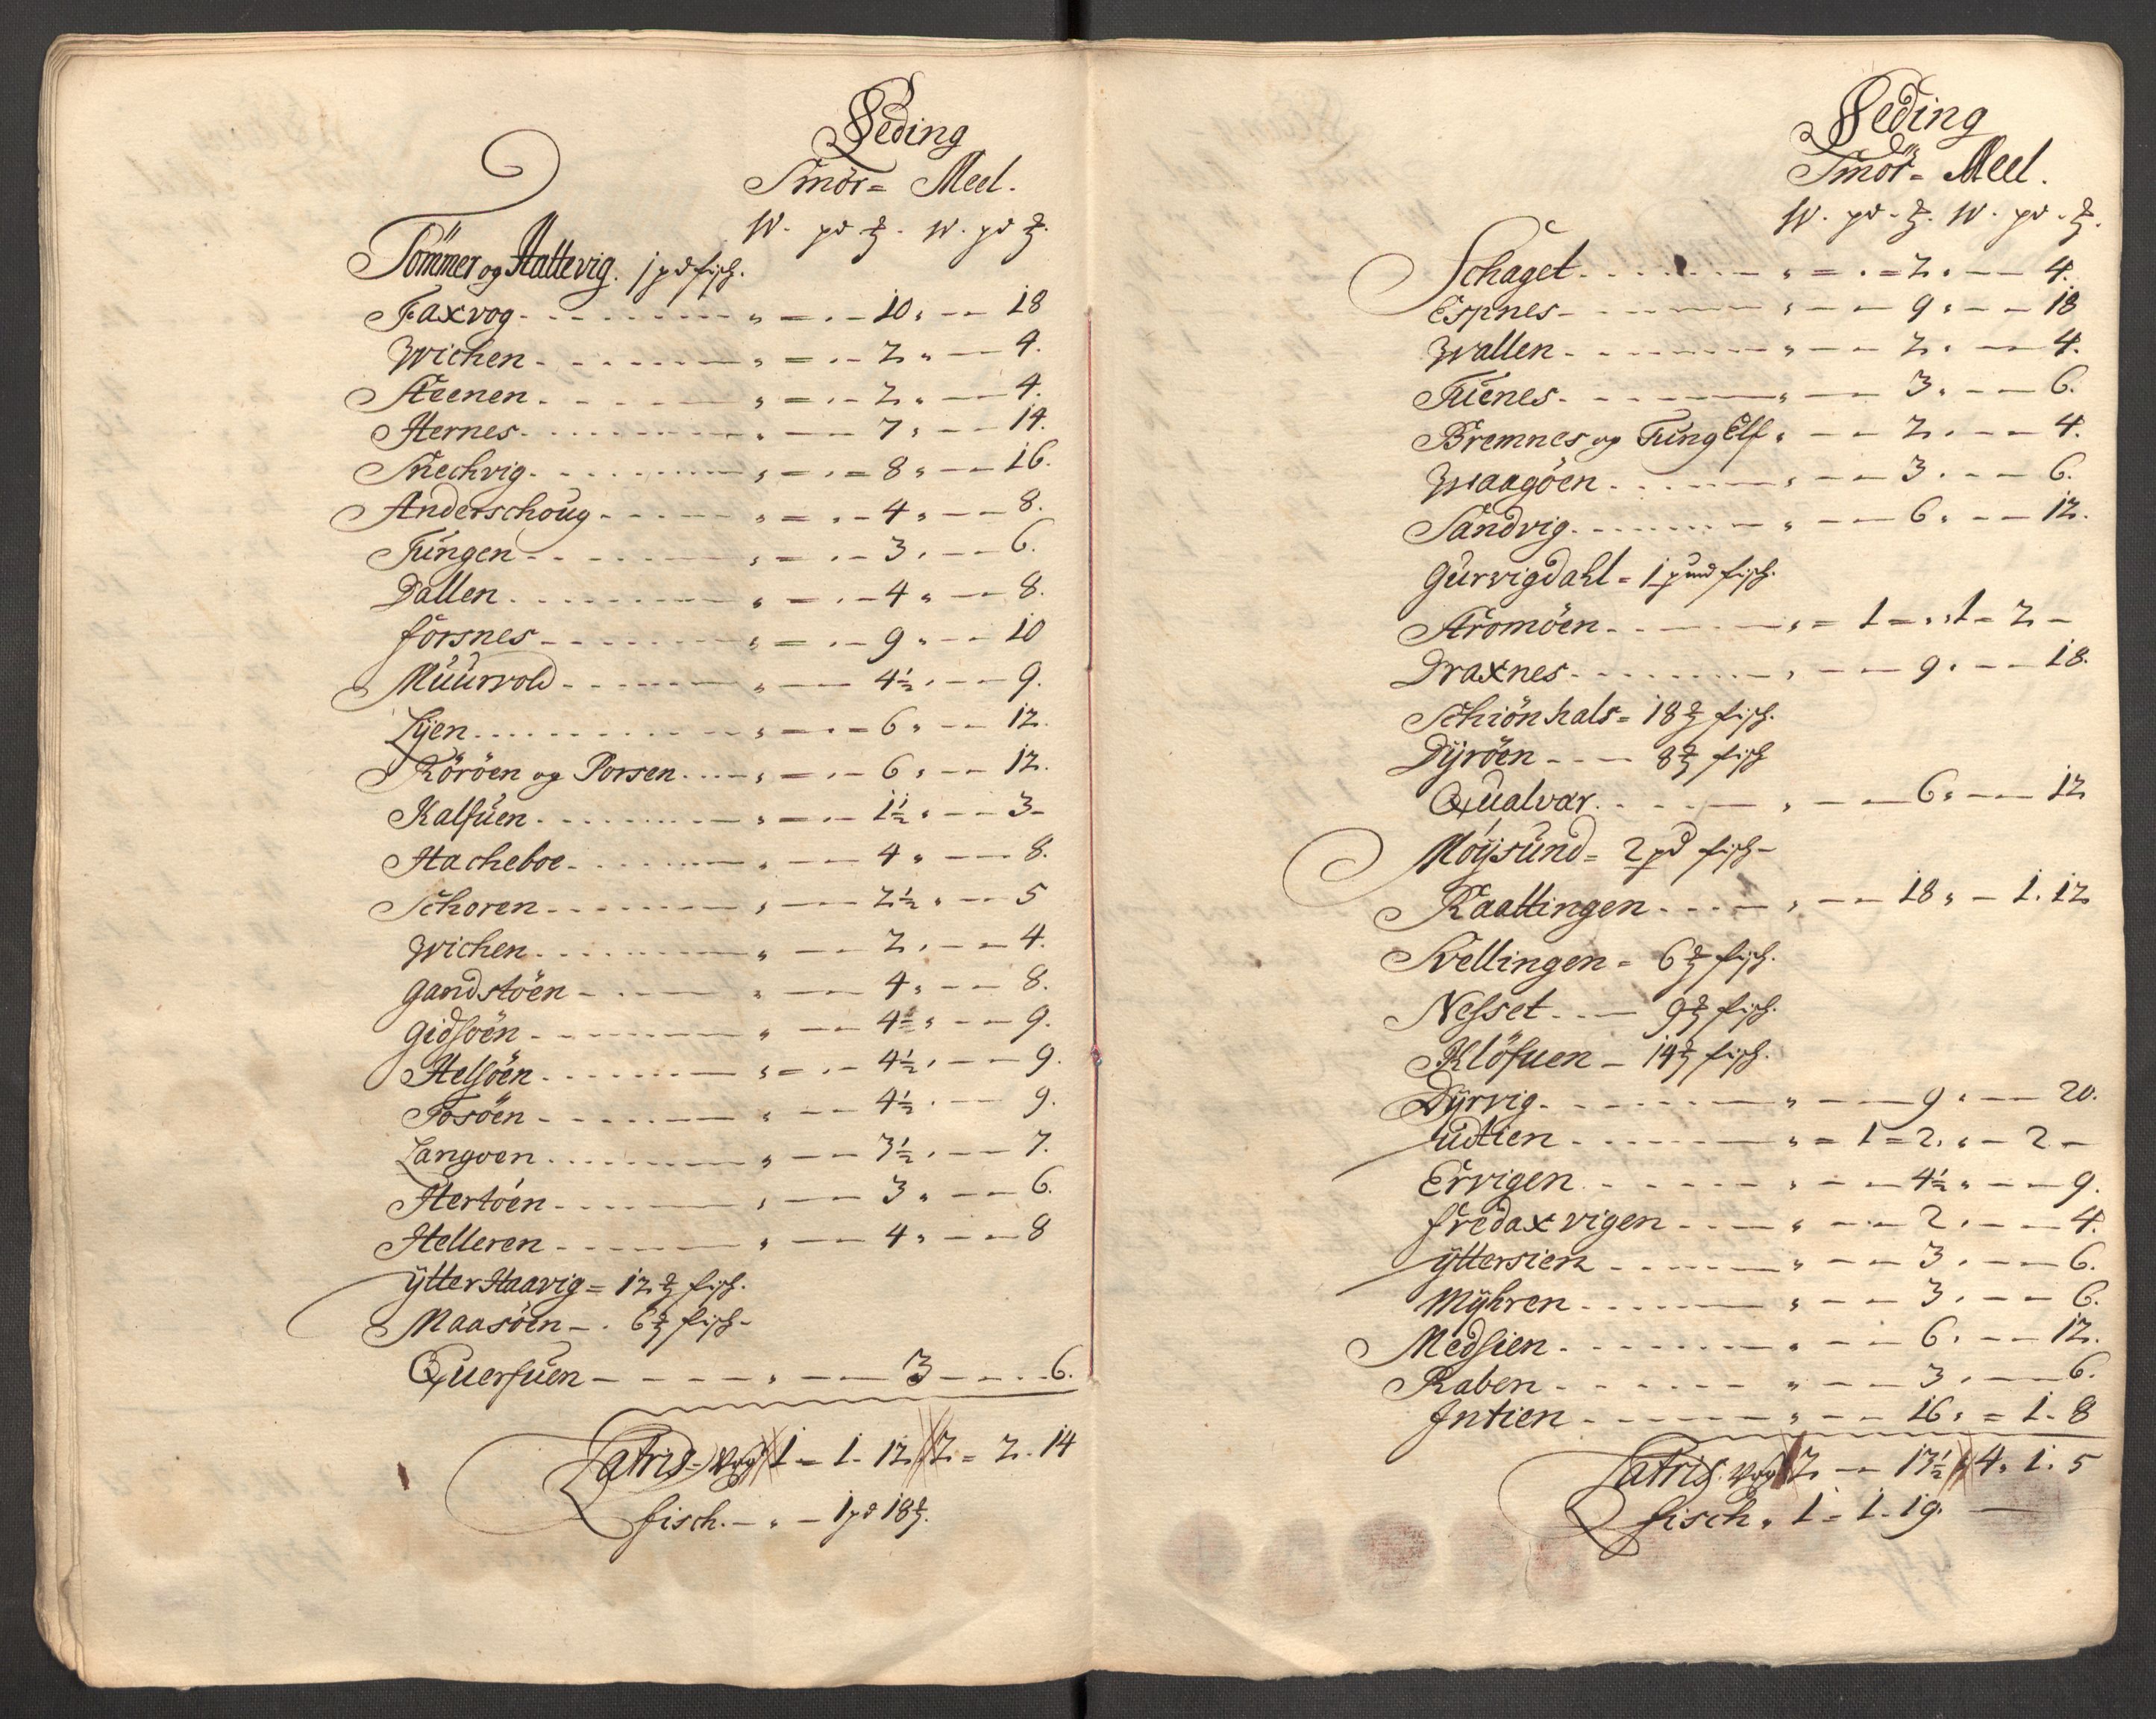 Leding
Smör = Meel.
W. pd ℔. W. pd ℔.
Tömmer og Hattevig. 1 pd fisch.
Faxvog - - - „ = - 10 „ - - 18
Wichen - - - „ = - 2 „ - - 4.
Steenen - - - „ = - 2 „ - - 4.
Hernes - - - „ - - 7 „ - - 14.
Snechvig - - - „ = - 8 „ - - 16.
Anderschoug - - - „ = - 4 „ - - 8.
Tungen - - - „ = - 3 „ - - 6.
Dallen - - - „ = - 4 „ - - 8.
forsnes - - - „ = - 9 „ - - 10
Muurvold - - - „ - - 4½ „ - - 9.
Lyen - - - „ - - 6 „ - - 12.
Köröen og Porsen - - - „ = - 6 „ - - 12.
Kalfuen - - - „ - - 1½ „ - - 3 -
Hacheboe - - - „ - - 4 „ - - 8.
Schoren - - - „ - - 2½ „ - - 5
Wichen - - - „ - - 2 „ - - 4.
gandstöen - - - „ - - 4 „ - - 8.
gidsöen - - - „ - - 4½ „ - - 9.
Helsöen - - - „ = - 4½ „ - - 9.
Tosöen - - - „ - - 4½ „ - - 9.
Langoen - - - „ - - 3½ „ - - 7.
Hertöen - - - „ - - 3 „ - - 6.
Helleren - - - „ - - 4 „ - - 8
ÿtter Haavig = 12 ℔ fisch.
Maasöen - 6 ℔ fisch -
Querfuen - - - „ - - 3 - - - 6.
Latris = Wog 1 = 1 - 12 2 = 2 - 14
fisch. - „ - 1 pd 18 ℔.
Leding
Smör = Meel.
W. pd - ℔. W. pd - ℔.
Schaget - - - „ = - 2 „ - - 4.
Espnes - - - „ - - 9 „ - - 18
Wallen - - - „ - - 2 „ - - 4.
Tuenes - - - „ - - 3 „ - - 6.
Bremnes og Tung Elf „ - - 2 „ - - 4.
Waagöen - - - „ - - 3 „ - - 6.
Sandvig - - - „ - - 6 „ - - 12.
gurvigdahl = 1 pund fisch.
Stromöen - - - „ = 1 = „ 1 - 2 -
Draxnes - - - „ - - 9 „ - - 18.
Schiönhals = 18 ℔ fisch.
Dÿröen - - - 8 ℔ fisch
Qualvar - - - „ - - 6 „ - - 12
Moÿsund = 2 pd fisch -
Kaattingen - - - „ - - 18 „ - 1. 12
Svellingen = 6 ℔ fisch.
Nesset - - - 9 ℔ fisch.
Klöfuen - 14 ℔ fisch.
Dÿrvig - - - „ - - 9 „ - - 20.
udtien - - - „ = 1 = 2 „ - 2 -
Ervigen - - - „ - - 4½ „ - - 9.
fredaxvigen - - - „ - - 2 „ - - 4.
ÿttersien - - - „ - - 3 „ - - 6.
Mÿhren - - - „ - - 3 „ - - 6.
Medsien - - - „ - - 6 „ - - 12.
Raben - - - „ - - 3 „ - - 6.
Intien - - - „ - - 16 „ = 1 - 8
Latris. Wog 2 - - 17½ 4 „ 1. 5
fisch „ 1 = 1 - 19.